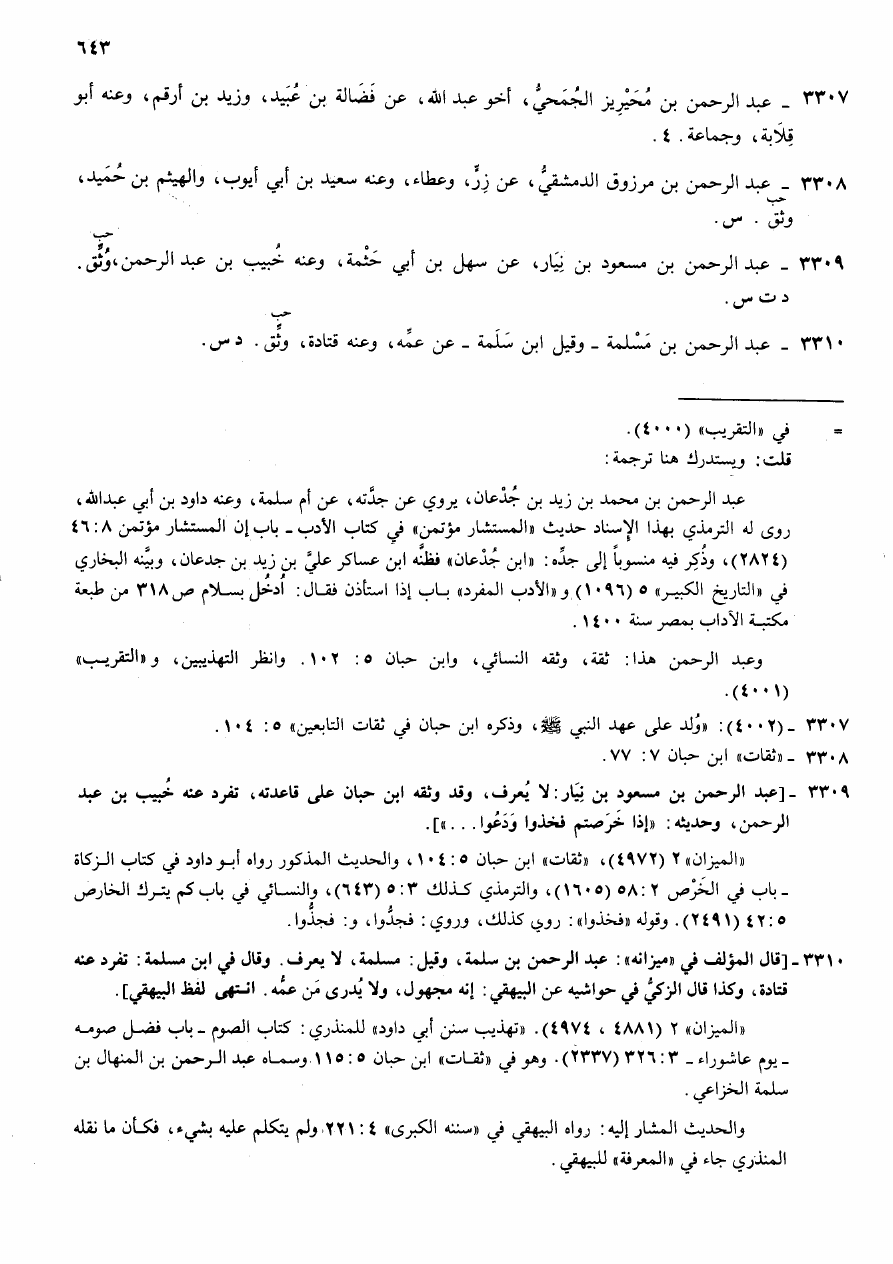 ٦٤٣
٣٣٠٧ ـ عبد الرحمن بن مُحَيْرِيز الجُمَحيُّ، أخو عبد الله، عن فَضَالة بن عُبَيد، وزيد بن أرقم، وعنه أبو
قِلَابة، وجماعة. ٤ .
٣٣٠٨ ـ عبد الرحمن بن مرزوق الدمشقيُّ، عن زِرٍّ، وعطاء، وعنه سعيد بن أبي أيوب، والهيثم بن حُمَيد،
حب
وثِّق . س.
حب
٣٣٠٩ ـ عبد الرحمن بن مسعود بن نِيَار، عن سهل بن أبي حَثْمة، وعنه خُبيب بن عبد الرحمن، وُثِّق.
د ت س.
حب
٣٣١٠ ـ عبد الرحمن بن مَسْلمة ـ وقيل ابن سَلَمة ـ عن عمِّه، وعنه قتادة، وثِّق . د س.
= في «التقريب» (٤٠٠٠).
قلت: ويستدرك هنا ترجمة:
عبد الرحمن بن محمد بن زيد بن جُدْعان، يروي عن جدَّته، عن أم سلمة، وعنه داود بن أبي عبدالله،
روى له الترمذي بهذا الإسناد حديث «المستشار مؤتمن» في كتاب الأدب ـ باب إن المستشار مؤتمن ٨: ٤٦
(٢٨٢٤)، وذُكِر فيه منسوباً إلى جدِّه: «ابن جُدْعان» فظنَّه ابن عساكر عليَّ بن زيد بن جدعان، وبيَّنه البخاري
في «التاريخ الكبير» ٥ (١٠٩٦) و «الأدب المفرد» باب إذا استأذن فقال: أدخُل بسلام ص ٣١٨ من طبعة
مكتبة الآداب بمصر سنة ١٤٠٠.
وعبد الرحمن هذا: ثقة، وثقه النسائي، وابن حبان ٥: ١٠٢. وانظر التهذيبين، و «التقريب»
(٤٠٠١).
٣٣٠٧ ـ (٤٠٠٢): «وُلد على عهد النبي ﷺ، وذكره ابن حبان في ثقات التابعين» ٥: ١٠٤.
٣٣٠٨ ـ «ثقات» ابن حبان ٧: ٧٧.
٣٣٠٩ ـ [عبد الرحمن بن مسعود بن نِيَار: لا يُعرف، وقد وثقه ابن حبان على قاعدته، تفرد عنه خُبيب بن عبد
الرحمن، وحديثه: «إذا خَرَصتم فخذوا وَدَعُوا...»].
«الميزان» ٢ (٤٩٧٢)، «ثقات» ابن حبان ٥: ١٠٤، والحديث المذكور رواه أبو داود في كتاب الزكاة
ـ باب في الخَرْص ٢: ٥٨ (١٦٠٥)، والترمذي كذلك ٣: ٥ (٦٤٣)، والنسائي في باب كم يترك الخارص
٥: ٤٢ (٢٤٩١). وقوله «فخذوا»: روي كذلك، وروي: فجدُّوا، و: فجذُّوا.
٣٣١٠ ـ [قال المؤلف في «ميزانه»: عبد الرحمن بن سلمة، وقيل: مسلمة، لا يعرف. وقال في ابن مسلمة: تفرد عنه
قتادة، وكذا قال الزكيُّ في حواشيه عن البيهقي: إنه مجهول، ولا يُدرى مَن عمُّه. انتهى لفظ البيهقي].
«الميزان» ٢ (٤٨٨١ ، ٤٩٧٤). «تهذيب سنن أبي داود» للمنذري: كتاب الصوم ـ باب فضل صومه
ـ يوم عاشوراء ـ ٣: ٣٢٦ (٢٣٣٧). وهو في «ثقات» ابن حبان ٥: ١١٥. وسماه عبد الرحمن بن المنهال بن
سلمة الخزاعي.
والحديث المشار إليه: رواه البيهقي في «سننه الكبرى» ٤: ٢٢١، ولم يتكلم عليه بشيء، فكأن ما نقله
المنذري جاء في «المعرفة» للبيهقي.